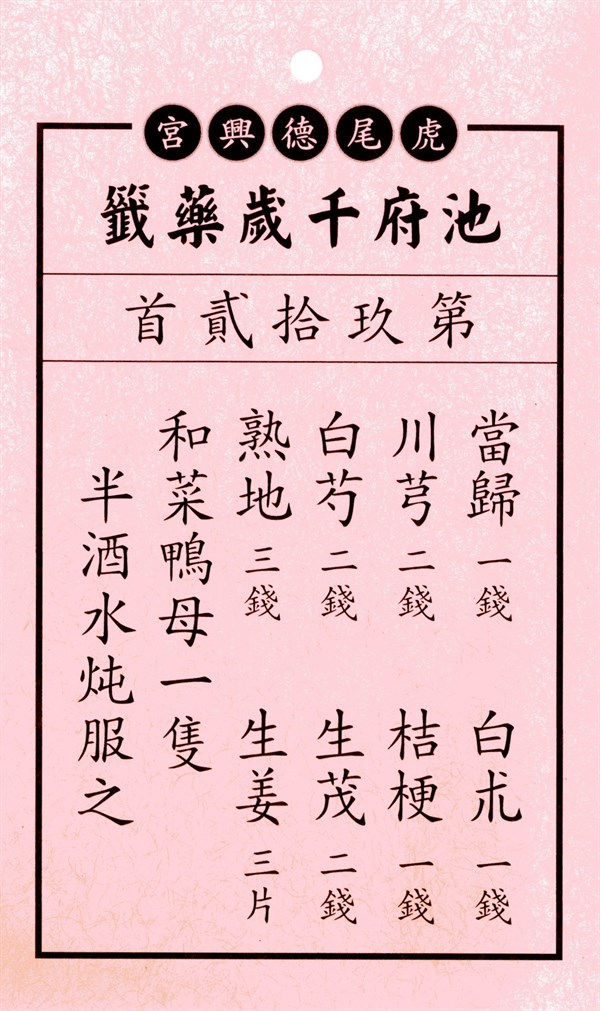 虎尾德興宮
池府千歲藥籤
第玖拾貳首
當歸一錢 白朮一錢
川芎二錢 桔梗一錢
白芍二錢 生茂二錢
熟地三錢 生姜三片
和菜鴨母一隻
半酒水炖服之